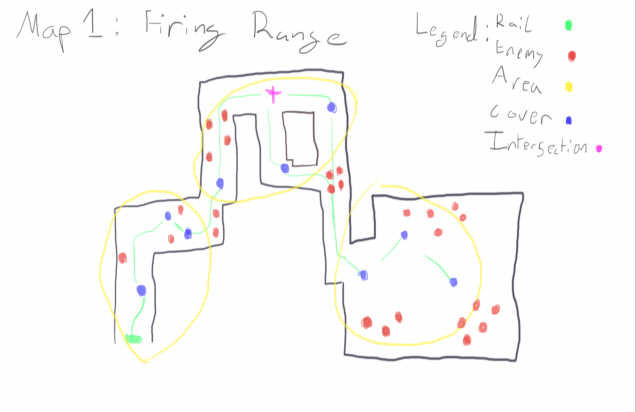 Map 1: Firing Range
Legend: Rail
Enemy
Area
Cover
Intersection